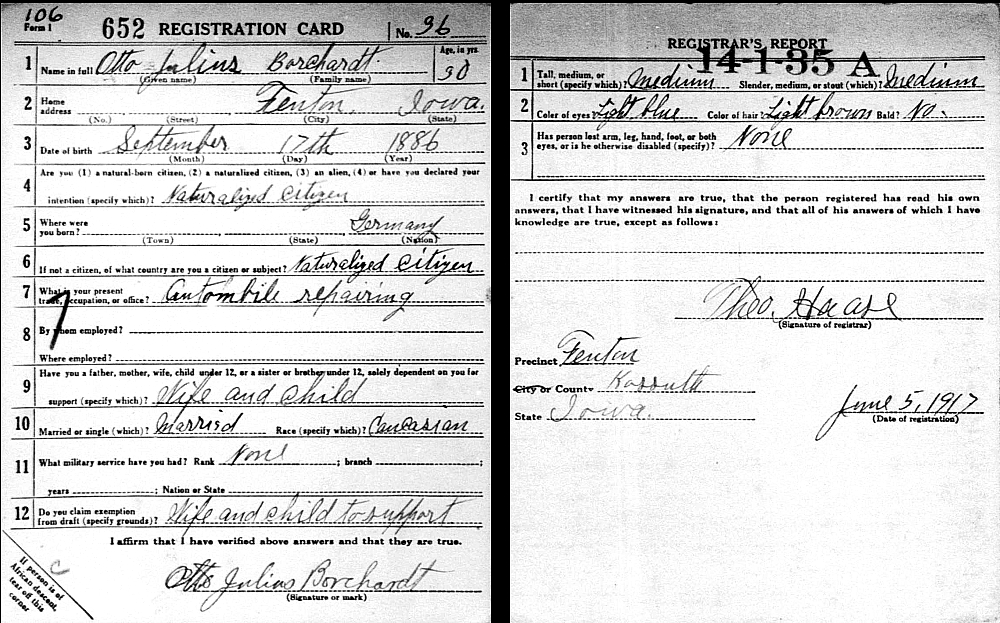 106
Form 1 652 REGISTRATION CARD No. 96
1 Name in full Otto Julius Borchardt Age, in yrs. 30
(Given name) (Family name)
2 Home address Fenton, Iowa.
(No.) (Street) (City) (State)
3 Date of birth September 17th 1886
(Month) (Day) (Year)
4 Are you (1) a natural-born citizen, (2) a naturalized citizen, (3) an alien, (4) or have you declared your
intention (specify which)? Naturalized Citizen
5 Where were you born? Germany
(Town) (State) (Nation)
6 If not a citizen, of what country are you a citizen or subject? Naturalized Citizen
7 What is your present trade, occupation, or office? Autombile repairing
8 By whom employed?
Where employed?
9 Have you a father, mother, wife, child under 12, or a sister or brother under 12, solely dependent on you for
support (specify which)? Wife and Child
10 Married or single (which)? Married Race (specify which)? Caucasian
11 What military service have you had? Rank None ; branch ;
years ; Nation or State
12 Do you claim exemption from draft (specify grounds)? Wife and child to support
I affirm that I have verified above answers and that they are true.
Otto Julius Borchardt
(Signature or mark)
If person is of
African descent,
tear off this
corner
C
REGISTRAR'S REPORT
14-1-35 A
1 Tall, medium, or short (specify which)? Medium Slender, medium, or stout (which)? Medium
2 Color of eyes? Light blue Color of hair? Light brown Bald? No.
3 Has person lost arm, leg, hand, foot, or both
eyes, or is he otherwise disabled (specify)? None
I certify that my answers are true, that the person registered has read his own
answers, that I have witnessed his signature, and that all of his answers of which I have
knowledge are true, except as follows:
Theo. Haase
(Signature of registrar)
Precinct Fenton
City or County Kossuth
State Iowa.
June 5, 1917
(Date of registration)